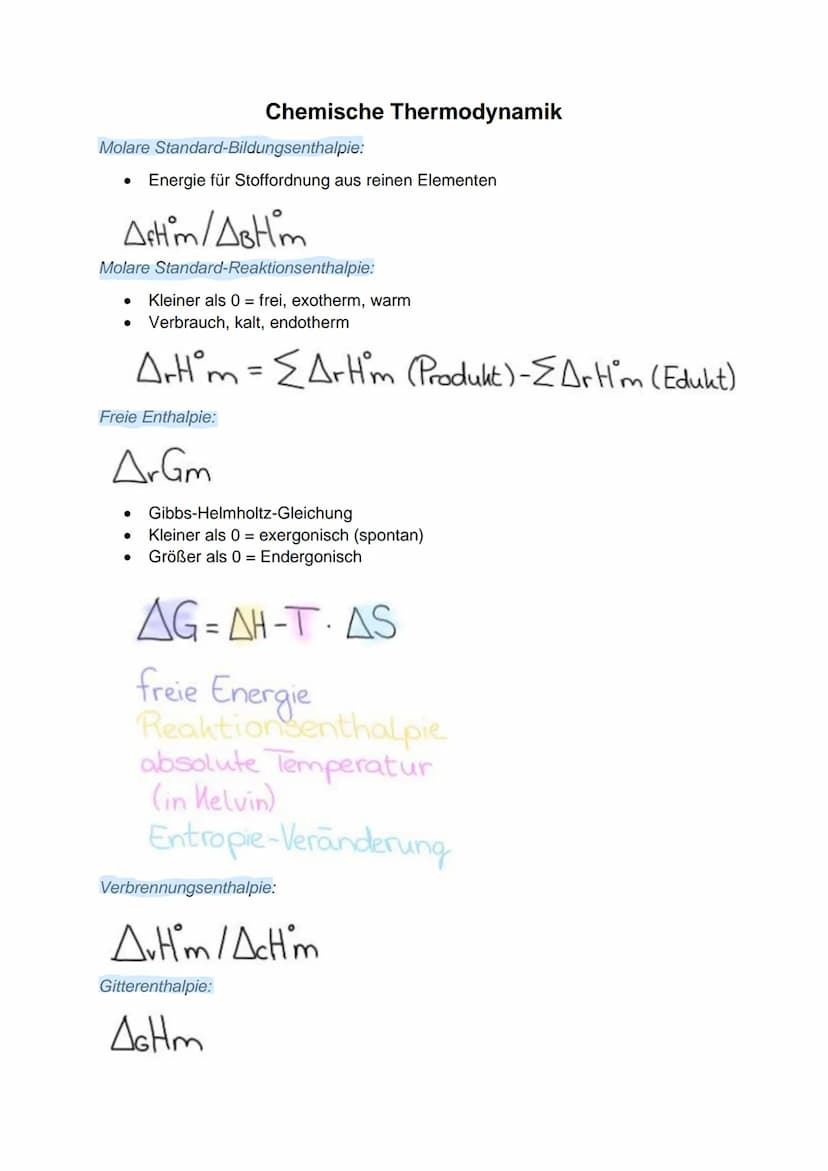 Chemische Thermodynamik
Molare Standard-Bildungsenthalpie:
• Energie für Stoffordnung aus reinen Elementen
ΔfH°m/ΔBH°m
Molare Standard-Reaktionsenthalpie:
• Kleiner als 0 = frei, exotherm, warm
• Verbrauch, kalt, endotherm
ΔrH°m = ΣΔrH°m (Produkt)-ΣΔrH°m (Edukt)
Freie Enthalpie:
ΔrGm
• Gibbs-Helmholtz-Gleichung
• Kleiner als 0 = exergonisch (spontan)
• Größer als 0 = Endergonisch
ΔG = ΔH-T · ΔS
freie Energie
Reaktionsenthalpie
absolute Temperatur
(in Kelvin)
Entropie-Veränderung
Verbrennungsenthalpie:
ΔvH°m/ΔcH°m
Gitterenthalpie:
ΔGHm